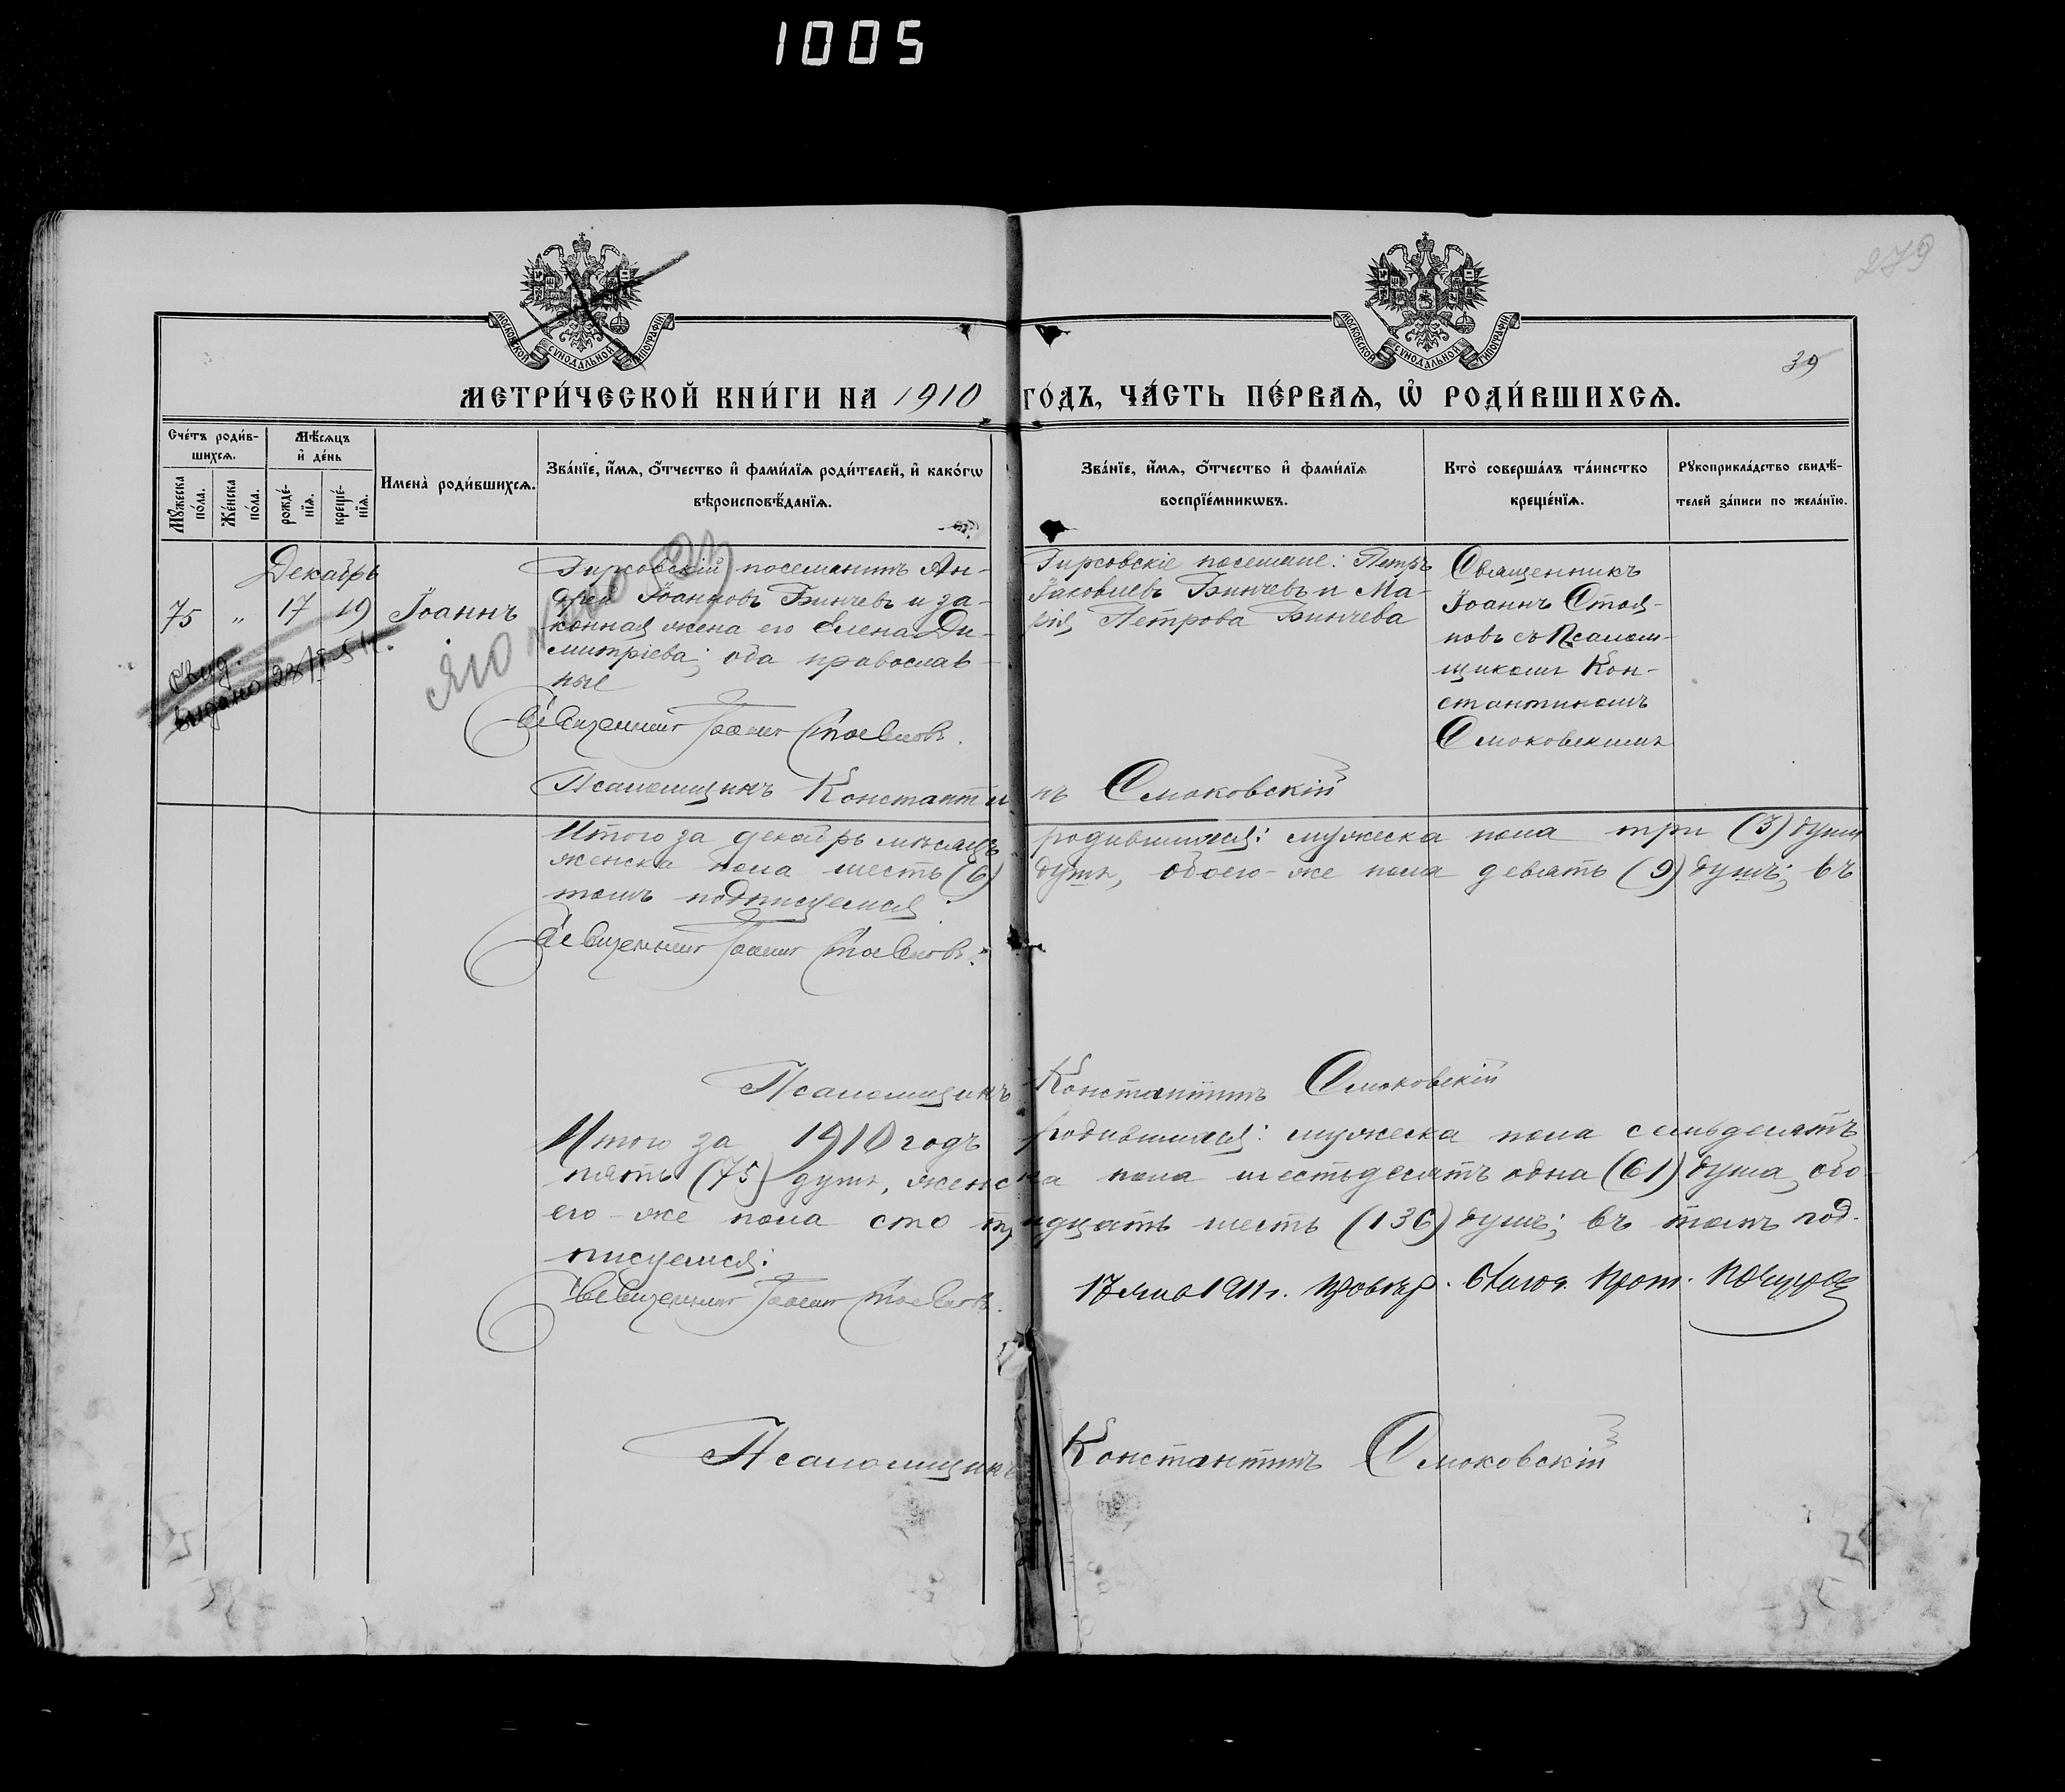 1005
279
39
МОСКОВСКОЙ СѴНОДАЛЬНОЙ ТИПОГРАФІИ
МОСКОВСКОЙ СѴНОДАЛЬНОЙ ТИПОГРАФІИ
МЕТРИ́ЧЕСКОЙ КНИ́ГИ НА 1910 ГО́ДЪ, ЧА́СТЬ ПЕ́РВАѦ, Ѽ РОДИ́ВШИХСѦ.
Сче́тъ роди́в-
шихсѧ.
Мꙋ́жеска по́ла.
Же́нска по́ла.
Мѣ́сѧцъ и҆ де́нь
рожде́-
нїѧ.
креще́-
нїѧ.
И҆мена̀ роди́вшихсѧ.
Зва́нїе, и҆́мѧ, ѻ҆́тчество и҆ фами́лїѧ роди́телей, и҆ како́гѡ
вѣроисповѣ́данїѧ.
Зва́нїе, и҆́мѧ, ѻ҆́тчество и҆ фами́лїѧ
воспрїе́мникѡвъ.
Кто̀ соверша́лъ та́инство
креще́нїѧ.
Рꙋкоприкла́дство свидѣ́-
телей за́писи по жела́нїю.
Декабрь
75 " 17 19 Іоаннъ
Гирсовскій поселянинъ Ан-
дрей Іоанновъ Бинчевъ и за-
конная жена его Елена Ди-
митріева; оба православ-
ные
Гирсовскіе поселяне: Петръ
Іаковлевъ Бинчевъ и Ма-
рія Петрова Бинчева
Священникъ
Іоаннъ Стоя-
новъ съ Псалом-
щикомъ Кон-
стантиномъ
Смоковскимъ
свид.
выдано
Священникъ Іоаннъ Стояновъ.
Псаломщикъ Константинъ Смоковскій
Итого за декабрь мѣсяцъ родившихся: мужеска пола три (3) души
женска пола шесть (6) душъ, обоего-же пола девять (9) душъ; въ
томъ подписуемся
Священникъ Іоаннъ Стояновъ.
Псаломщикъ Константинъ Смоковскій
Итого за 1910 годъ родившихся: мужеска пола семьдесятъ
пять (75) душъ, женска пола шестьдесятъ одна (61) душа, обо-
его-же пола сто тридцать шесть (136) душъ; въ томъ под-
писуемся:
Священникъ Іоаннъ Стояновъ.
17 1911 г. Благоч. Прот.
Псаломщикъ Константинъ Смоковскій